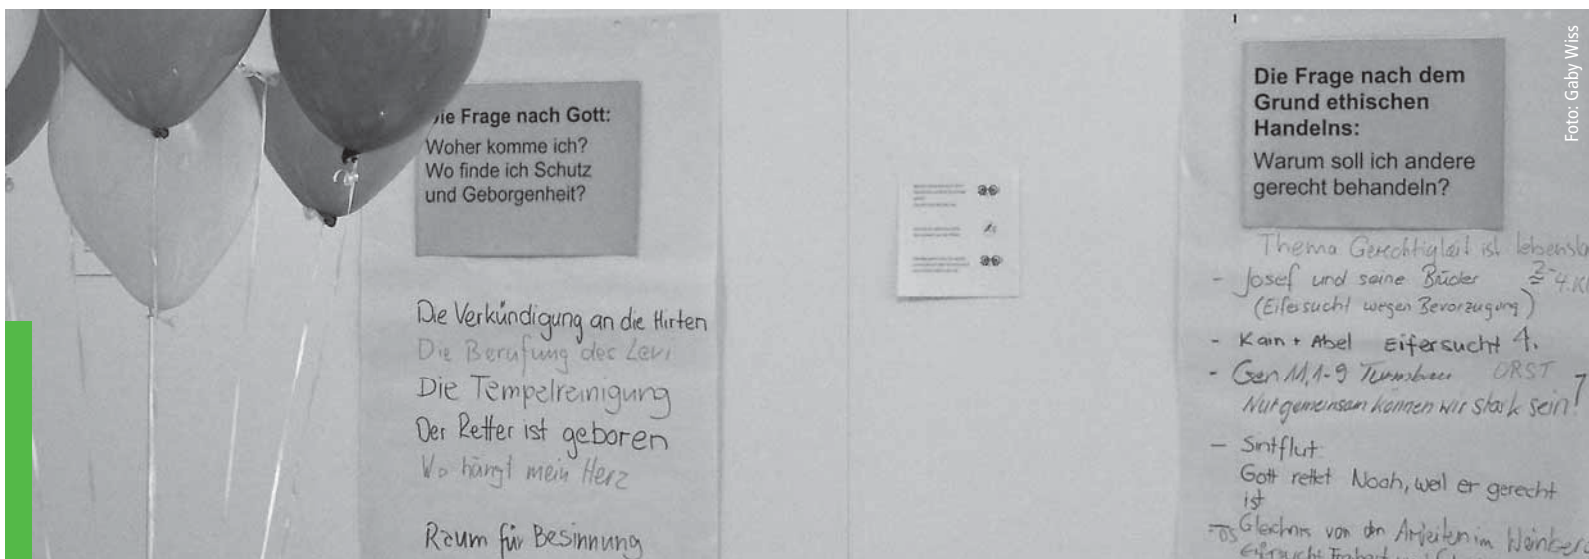 Die Frage nach Gott:
Woher komme ich?
Wo finde ich Schutz
und Geborgenheit?
Die Verkündigung an die Hirten
Die Berufung des Levi
Die Tempelreinigung
Der Retter ist geboren
Wo hängt mein Herz
Raum für Besinnung
Die Frage nach dem
Grund ethischen
Handelns:
Warum soll ich andere
gerecht behandeln?
Thema Gerechtigkeit ist
- Josef und seine Brüder
(Eifersucht wegen Bevorzugung)
- Kain + Abel Eifersucht 4.
- Gen 11,1-9 Turmbau
Nur gemeinsam können wir stark sein!
- Sintflut
Gott rettet Noah, weil er gerecht
ist
Gleichnis von den Arbeitern im
Foto: Gaby Wiss